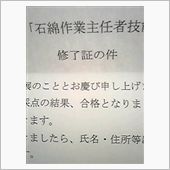 「石綿作業主任者技
修了証の件
展のこととお慶び申し上げ
採点の結果、合格となりま
ます。
ましたら、氏名・住所等
す。